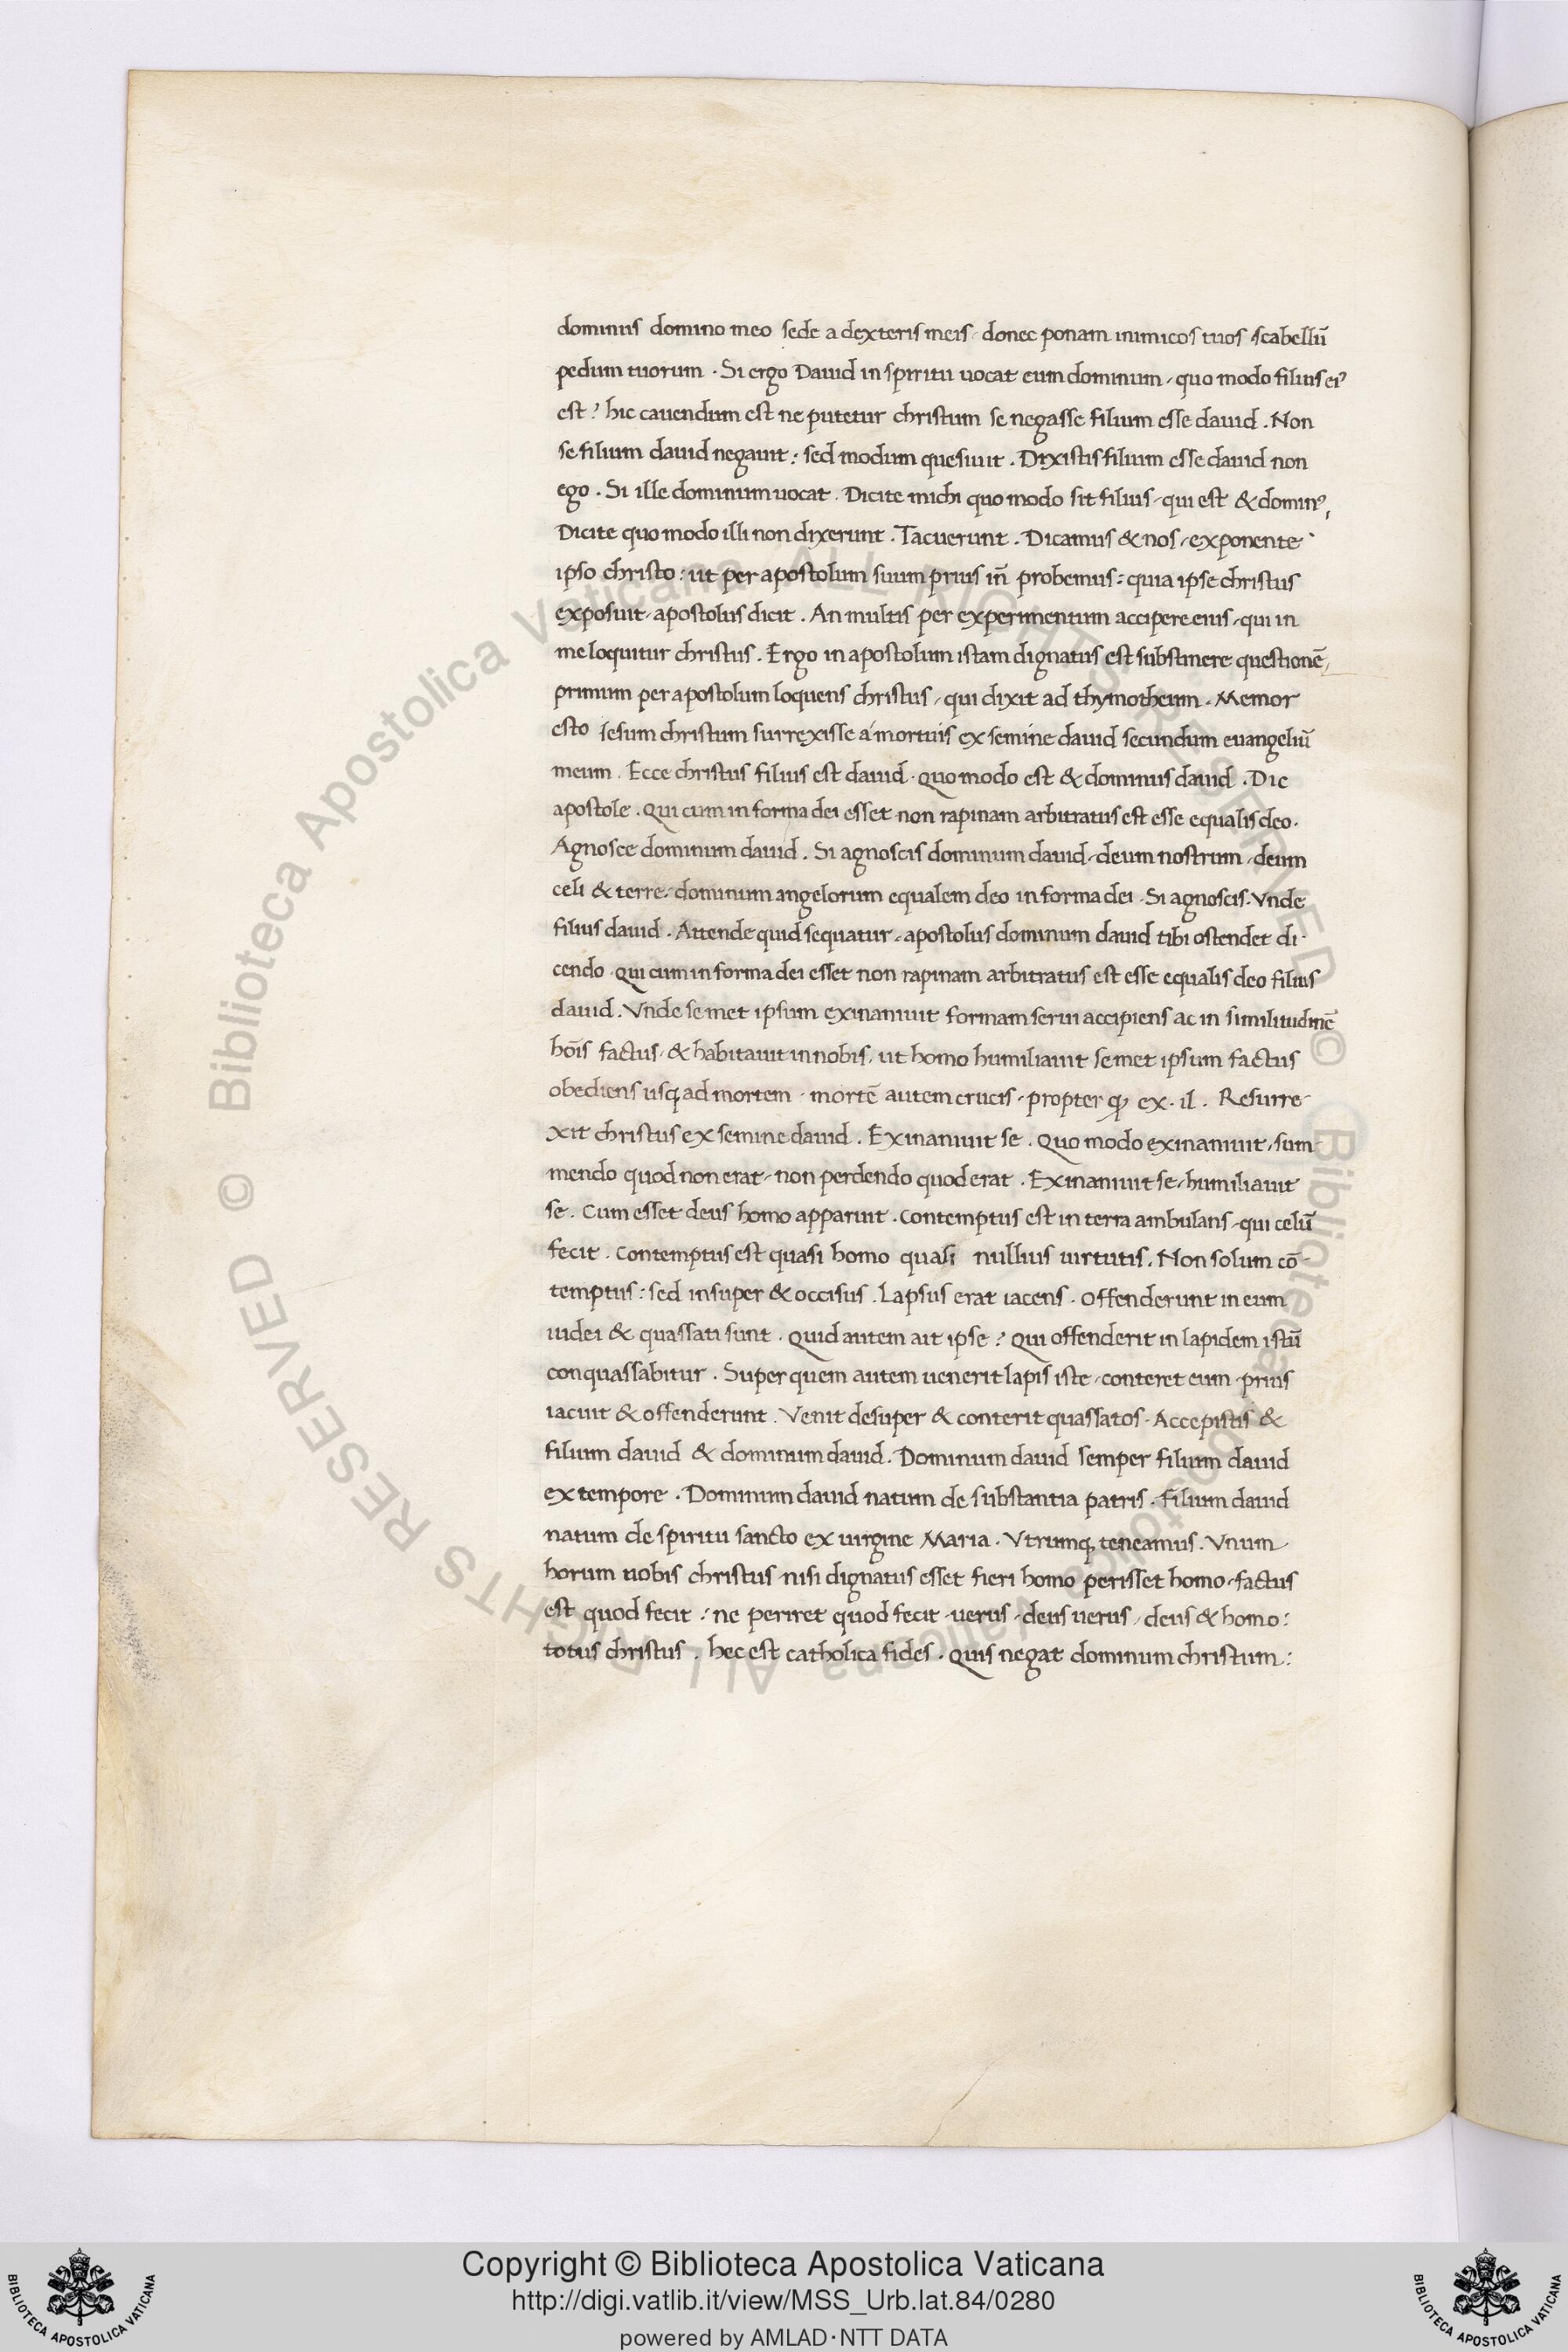 dominus domino meo sede a dexteris meis donec ponam inimicos tuos scabellū
pedum tuorum . Si ergo Dauid in spiritu uocat eum dominum , quo modo filius ei⁹
est ? hic cauendum est ne putetur christum se negasse filium esse dauid . Non
se filium dauid negauit : sed modum quesiuit . Dixistis filium esse dauid non
ego . Si ille dominum uocat . Dicite michi quo modo sit filius , qui est & domin⁹,
Dicite quo modo illi non dixerunt . Tacuerunt . Dicamus & nos , exponente
ipso christo : ut per apostolum suum prius in̄ probemus : quia ipse christus
exposuit , apostolus dicit . An multis per experimentum accipere eius , qui in
me loquitur christus . Ergo in apostolum istam dignatus est substinere questionē,
primum per apostolum loquens christus , qui dixit ad thymotheum . Memor
esto iesum christum surrexisse á mortuis ex semine dauid secundum euangeliū
meum . Ecce christus filius est dauid . quo modo est & dominus dauid . Dic
apostole . Qui cum in forma dei esset non rapinam arbitratus est esse equalis deo .
Agnosce dominum dauid . Si agnoscis dominum dauid , deum nostrum , deum
celi & terre , dominum angelorum equalem deo in forma dei . Si agnoscis . Vnde
filius dauid . Attende quid sequatur , apostolus dominum dauid tibi ostendet di-
cendo . qui cum in forma dei esset non rapinam arbitratus est esse equalis deo filius
dauid . Vnde semet ipsum exinaniuit formam serui accipiens ac in similitudinē
hōis factus , & habitauit in nobis , ut homo humiliauit semet ipsum factus
obediens usq; ad mortem , mortē autem crucis , propter qꝫ ex . il . Resurre-
xit christus ex semine dauid . Exinaniuit se . Quo modo exinaniuit , sum-
mendo quod non erat , non perdendo quod erat . Exinaniuit se , humiliauit
se . Cum esset deus homo apparuit . contemptus est in terra ambulans , qui celū
fecit . contemptus est quasi homo quasi nullius uirtutis . Non solum cō-
temptus : sed insuper & occisus . Lapsus erat iacens . offenderunt in eum
iudei & quassati sunt . Quid autem ait ipse ? Qui offenderit in lapidem istū
conquassabitur . Super quem autem uenerit lapis iste , conteret eum , prius
iacuit & offenderunt . Venit desuper & conterit quassatos . Accepistis &
filium dauid & dominum dauid . Dominum dauid semper filium dauid
ex tempore . Dominum dauid natum de substantia patris . filium dauid
natum de spiritu sancto ex uirgine Maria . Vtrumq; teneamus . Vnum
horum nobis christus nisi dignatus esset fieri homo perisset homo , factus
est quod fecit : ne periret quod fecit , uerus , deus uerus , deus & homo :
totus christus . hec est catholica fides . Quis negat dominum christum :
© Biblioteca Apostolica Vaticana ALL RIGHTS RESERVED © Biblioteca Apostolica Vaticana ALL RIGHTS RESERVED
Copyright © Biblioteca Apostolica Vaticana
http://digi.vatlib.it/view/MSS_Urb.lat.84/0280
powered by AMLAD·NTT DATA
BIBLIOTECA APOSTOLICA VATICANA
BIBLIOTECA APOSTOLICA VATICANA